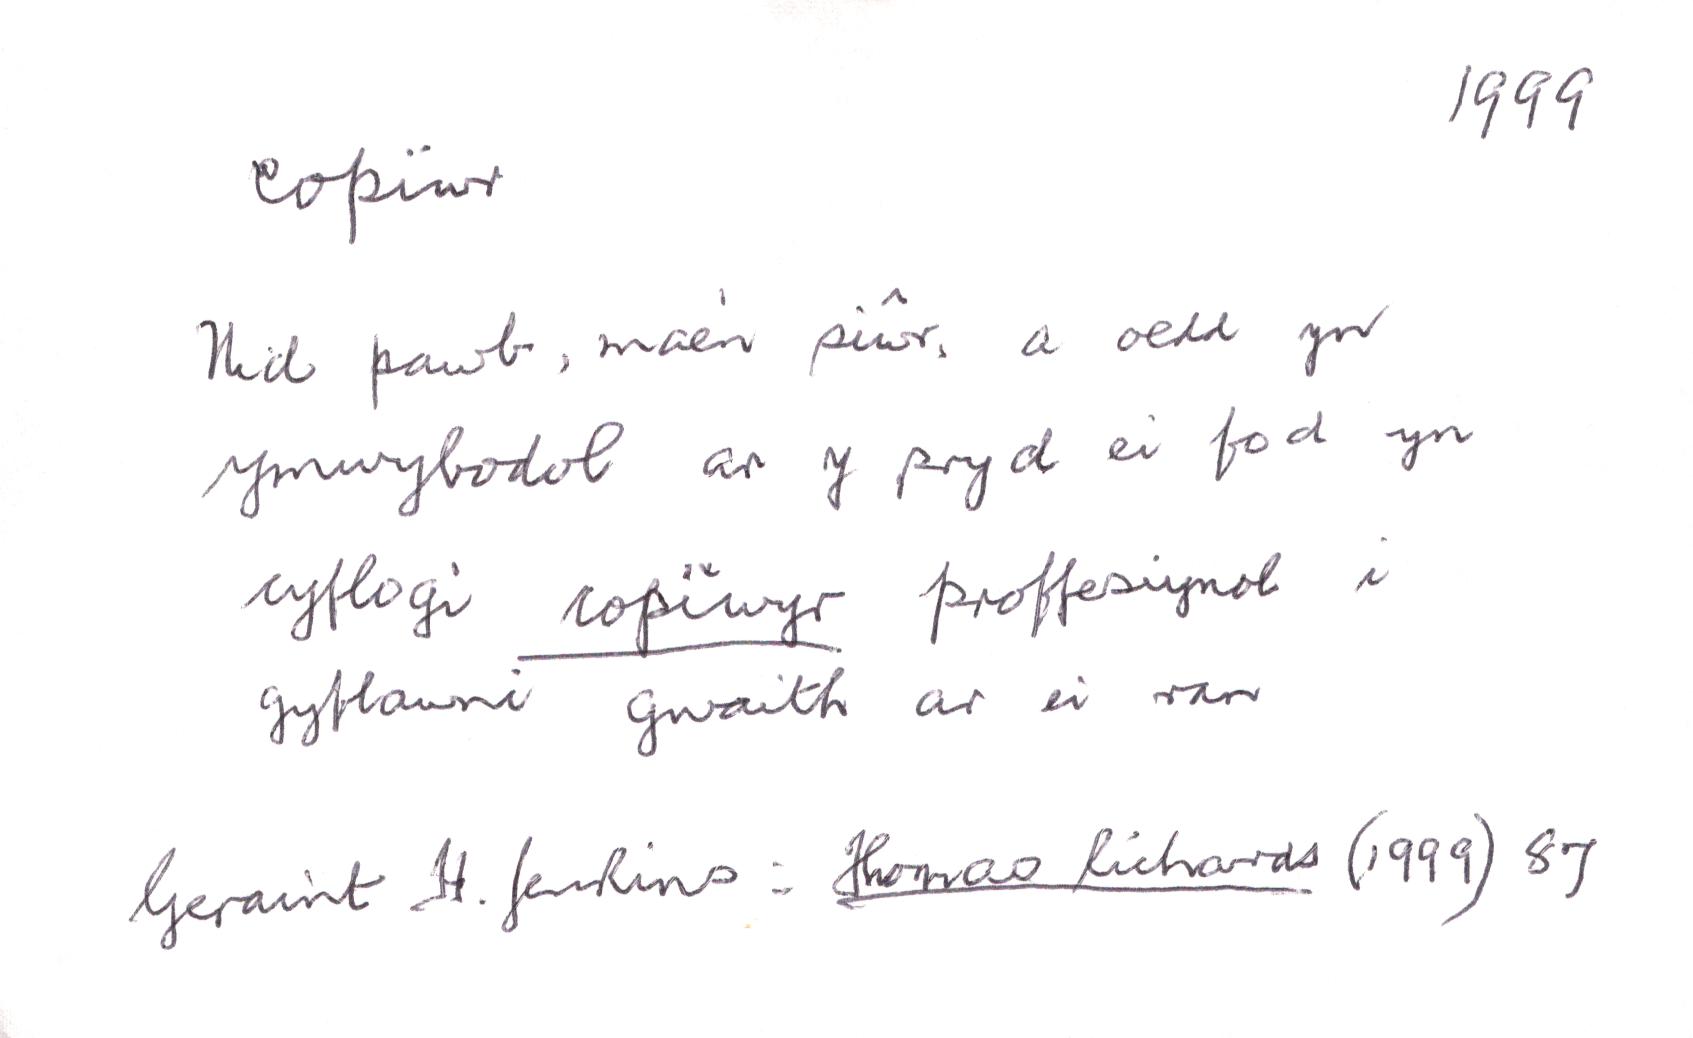 1999
copïwr
Nid pawb, mae'n siŵr, a oedd yn
ymwybodol ar y pryd ei fod yn
cyflogi copïwyr proffesiynol i
gyflawni gwaith ar ei ran
Geraint H. Jenkins : Thomas Richards (1999) 87